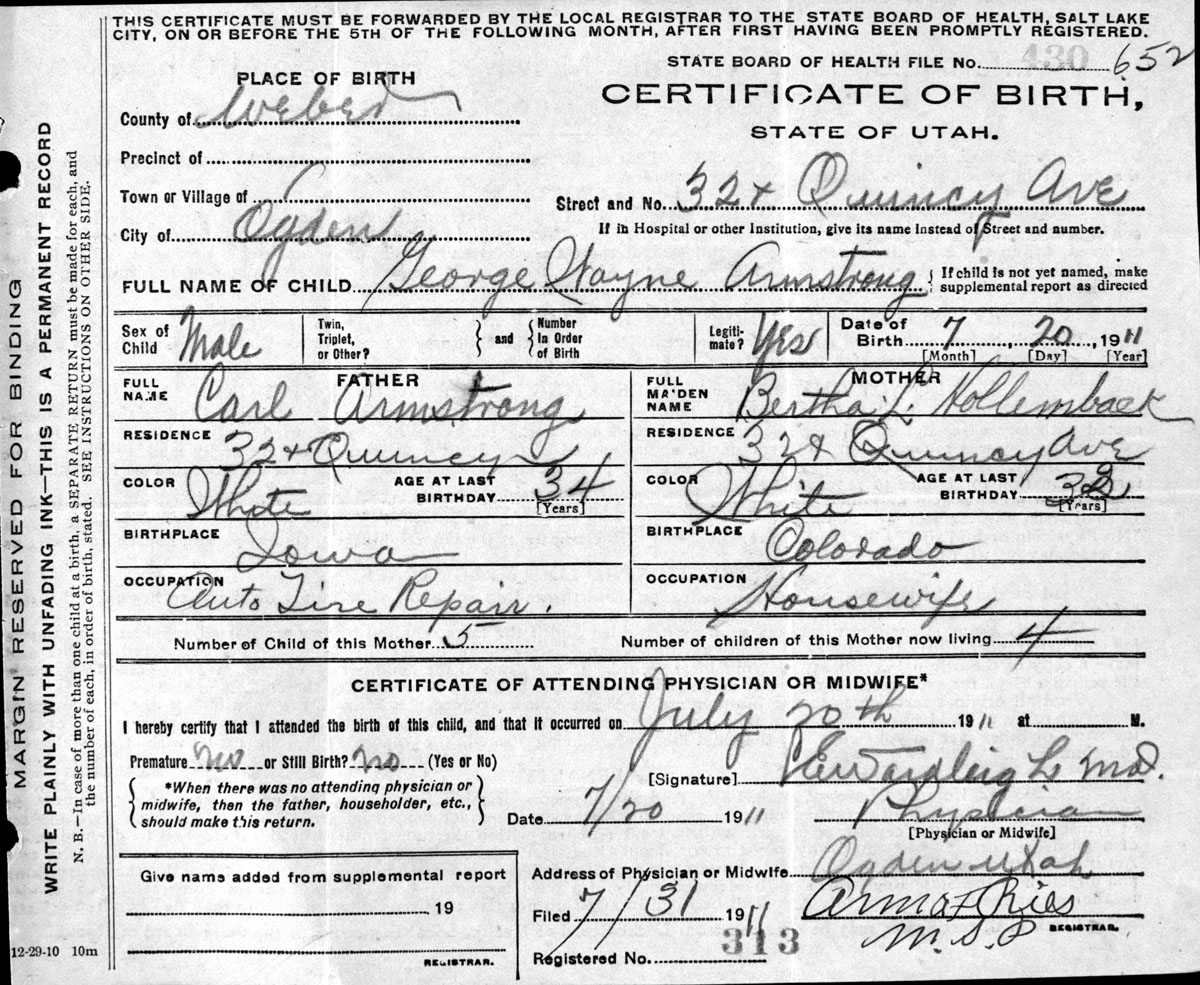 THIS CERTIFICATE MUST BE FORWARDED BY THE LOCAL REGISTRAR TO THE STATE BOARD OF HEALTH, SALT LAKE
CITY, ON OR BEFORE THE 5TH OF THE FOLLOWING MONTH, AFTER FIRST HAVING BEEN PROMPTLY REGISTERED.
STATE BOARD OF HEALTH FILE No. 430 652
PLACE OF BIRTH
CERTIFICATE OF BIRTH,
STATE OF UTAH.
County of Weber
Precinct of
Town or Village of
Street and No. 324 Quincy Ave
City of Ogden
If in Hospital or other Institution, give its name instead of Street and number.
FULL NAME OF CHILD George Wayne Armstrong { If child is not yet named, make
supplemental report as directed
Sex of Child Male
Twin, Triplet, or Other? } and { Number In Order of Birth
Legitimate? Yes
Date of Birth 7, 20, 1911
[Month] [Day] [Year]
FATHER
FULL NAME Carl Armstrong
MOTHER
FULL MAIDEN NAME Bertha L. Hollemback
RESIDENCE 324 Quincy
RESIDENCE 324 Quincy Ave
COLOR White AGE AT LAST BIRTHDAY 34 [Years]
COLOR White AGE AT LAST BIRTHDAY [Years]
BIRTHPLACE Iowa
BIRTHPLACE Colorado
OCCUPATION Auto Tire Repair.
OCCUPATION Housewife
Number of Child of this Mother 5 Number of children of this Mother now living 4
CERTIFICATE OF ATTENDING PHYSICIAN OR MIDWIFE*
I hereby certify that I attended the birth of this child, and that it occurred on July 20th 1911 at M.
Premature no or Still Birth? no (Yes or No)
[Signature] MD.
{ *When there was no attending physician or
midwife, then the father, householder, etc.,
should make this return. }
Date 7/20 1911 Physician
[Physician or Midwife]
Address of Physician or Midwife Ogden Utah
Give name added from supplemental report
19
REGISTRAR.
Filed 7/31 1911
REGISTRAR.
Registered No. 313
12-29-10 10m
MARGIN RESERVED FOR BINDING
WRITE PLAINLY WITH UNFADING INK—THIS IS A PERMANENT RECORD
N. B.—In case of more than one child at a birth, a SEPARATE RETURN must be made for each, and
the number of each, in order of birth, stated. SEE INSTRUCTIONS ON OTHER SIDE.